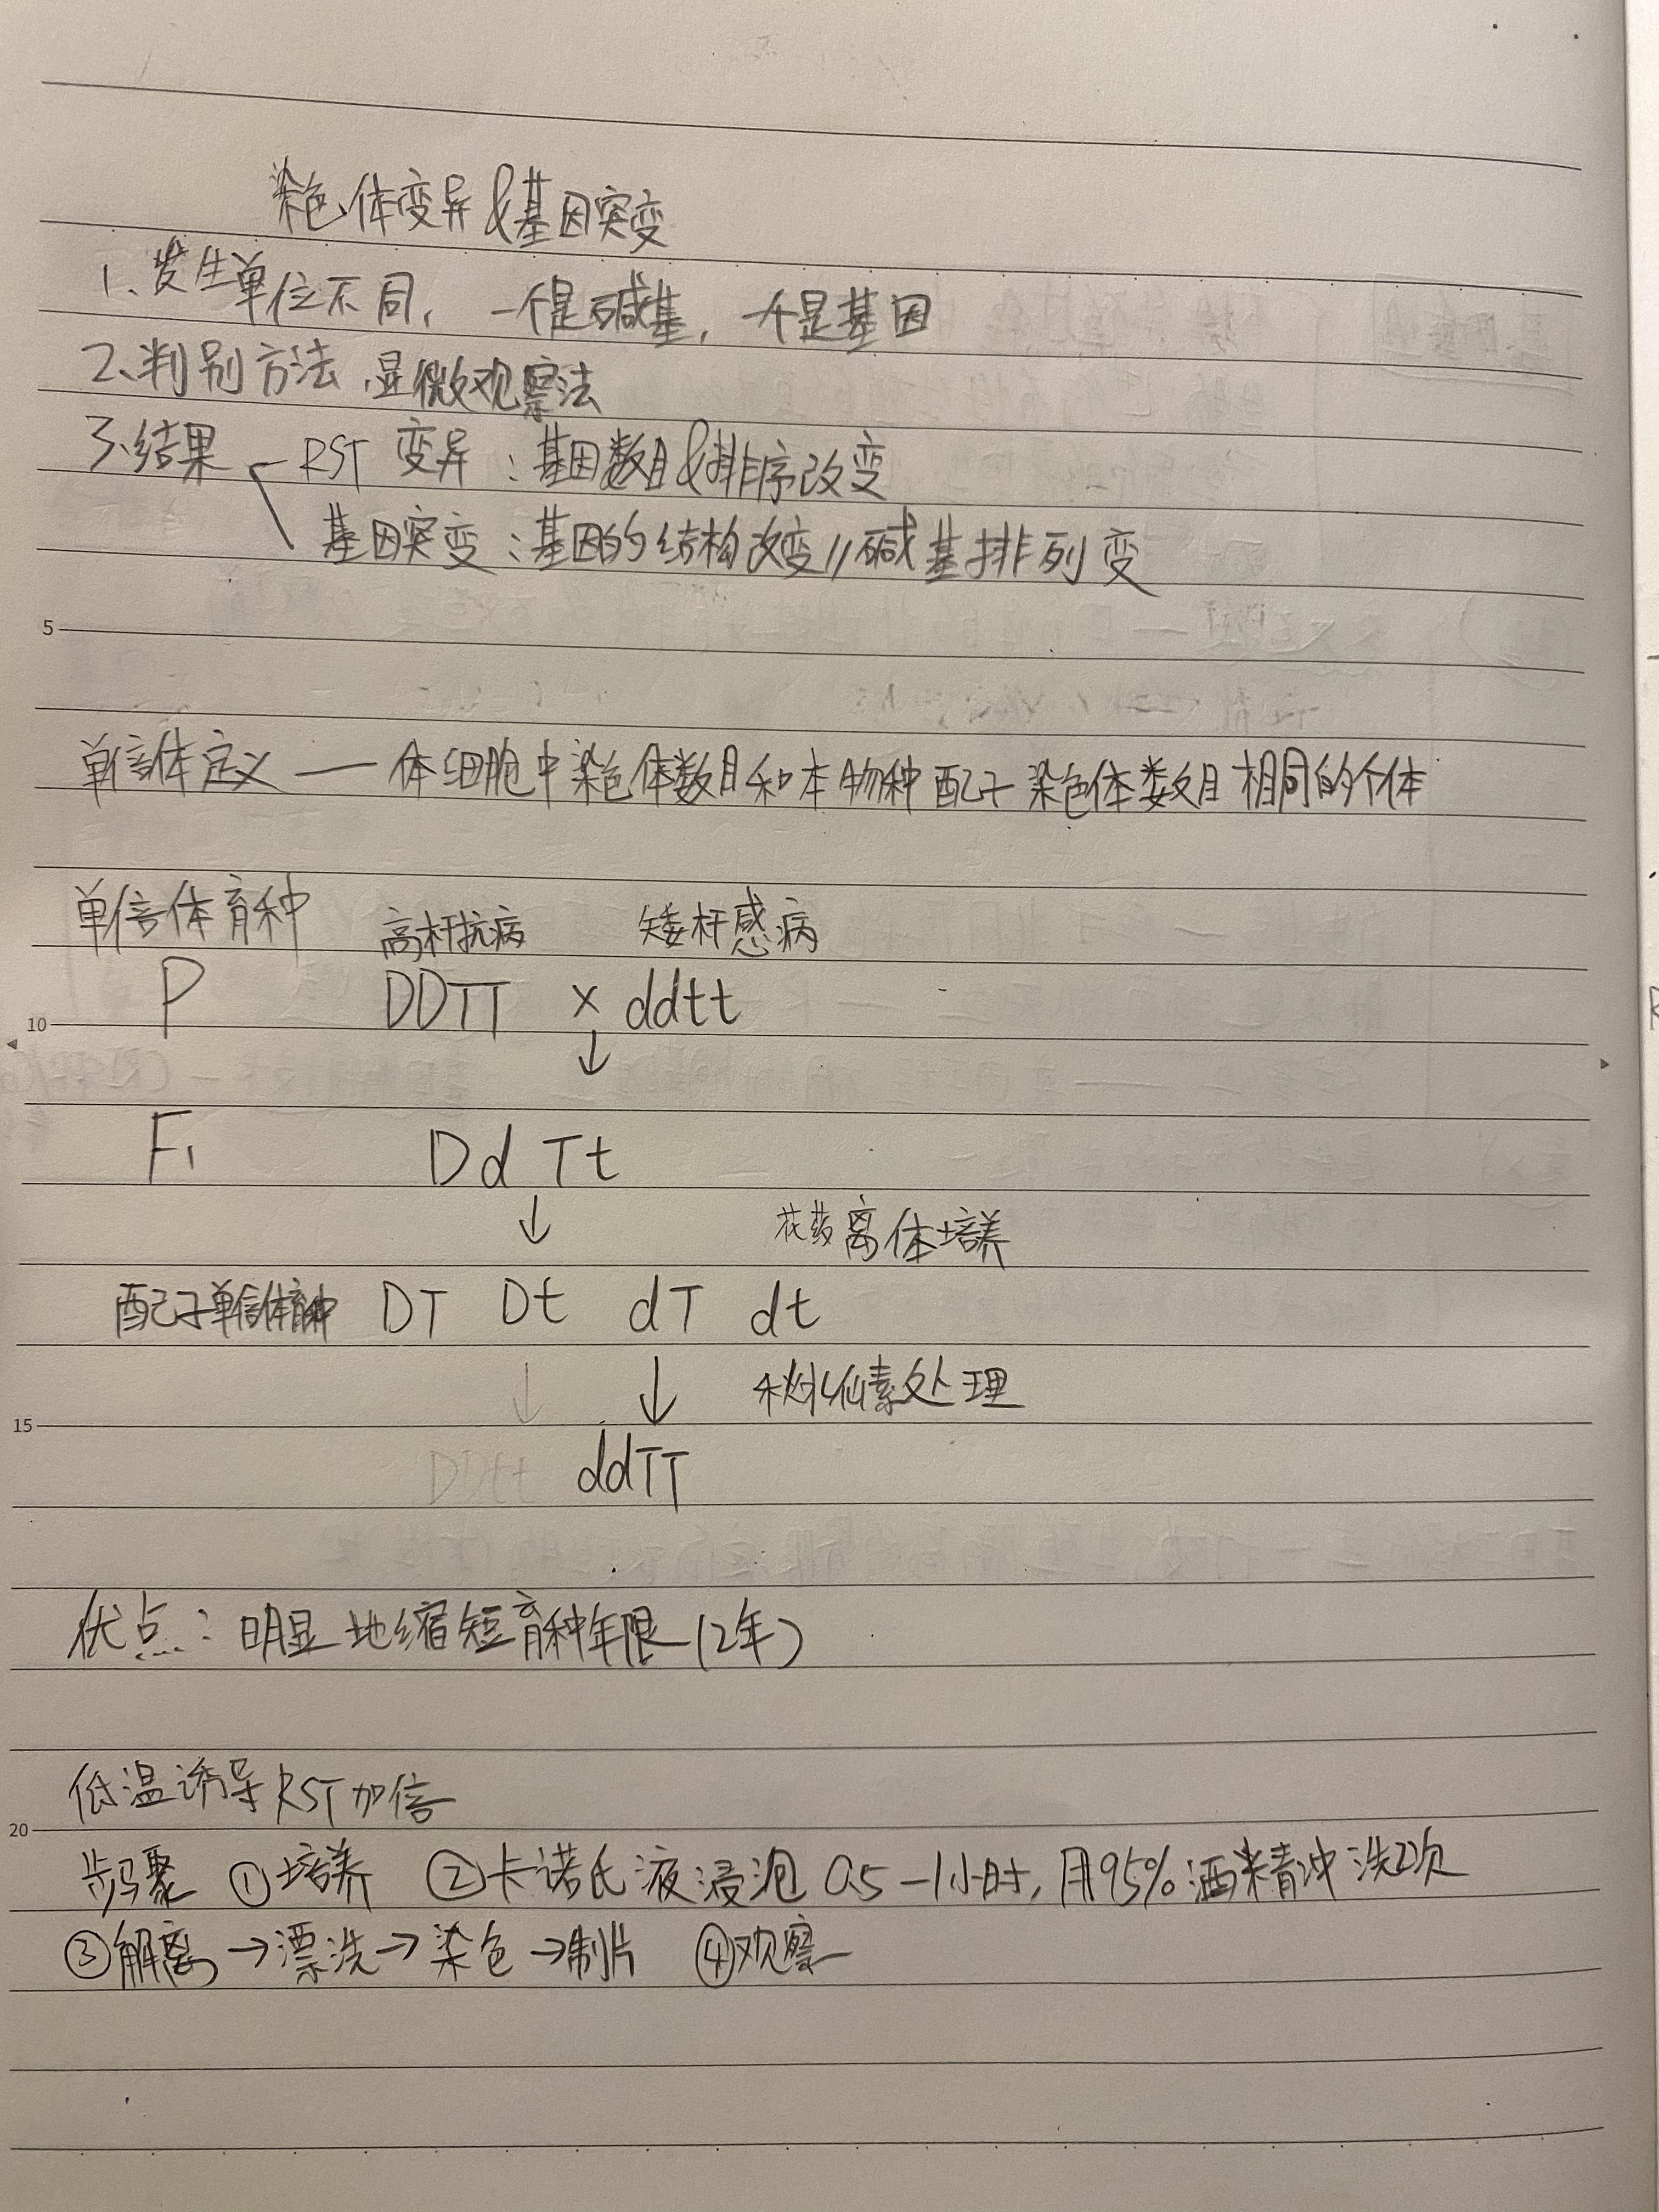 染色体变异&基因突变
1、发生单位不同，一个是碱基，一个是基因
2、判别方法 显微观察法
3、结果 RST 变异：基因数目&排序改变
基因突变：基因的结构改变//碱基排列变
5
单倍体定义 — 体细胞中染色体数目和本物种配子染色体数目相同的个体
单倍体育种 高杆抗病 矮杆感病
10 P DDTT × ddtt
↓
F1 DdTt
↓ 花药离体培养
配子单倍体 DT Dt dT dt
15 ↓ ↓ 秋水仙素处理
DDtt ddTT
优点：明显地缩短育种年限（2年）
20
低温诱导RST加倍
步骤 ①培养 ②卡诺氏液浸泡 0.5-1小时，用95%酒精冲洗2次
③解离→漂洗→染色→制片 ④观察